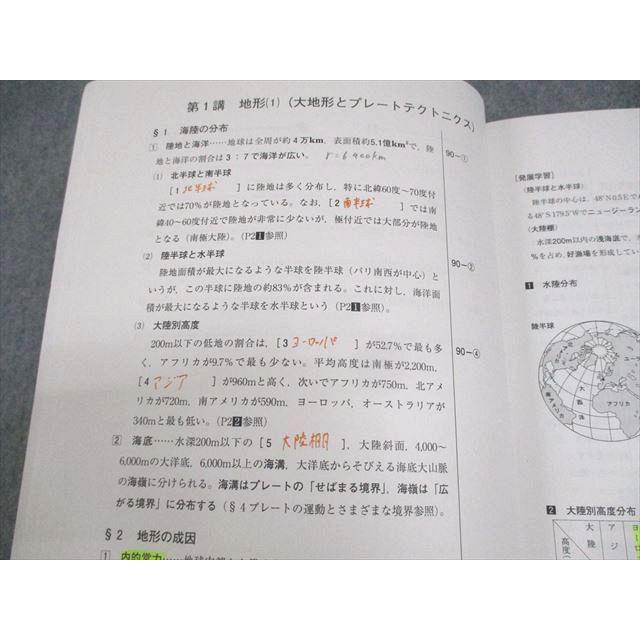 第1講 地形(1)(大地形とプレートテクトニクス)
§1 海陸の分布
1 陸地と海洋……地球は全周が約4万km，表面積約5.1億km²で，陸
地と海洋の割合は3：7で海洋が広い。 r=6400km
90-①
(1) 北半球と南半球
[1 北半球 ]に陸地は多く分布し，特に北緯60度〜70度付
近では70%が陸地となっている。なお，[2 南半球 ]では南
緯40〜60度付近で陸地が非常に少ないが，極付近では大部分が陸地
となる(南極大陸)。(P21参照)
(2) 陸半球と水半球
90-②
陸地面積が最大になるような半球を陸半球(パリ南西が中心)と
いうが，この半球に陸地の約83%が含まれる。これに対し，海洋面
積が最大になるような半球を水半球という(P21参照)。
(3) 大陸別高度
200m以下の低地の割合は，[3 ヨーロッパ ]が52.7%で最も多
90-④
く，アフリカが9.7%で最も少ない。平均高度は南極が2,200m，
[4 アジア ]が960mと高く，次いでアフリカが750m，北アメ
リカが720m，南アメリカが590m，ヨーロッパ，オーストラリアが
340mと最も低い。(P22参照)
2 海底……水深200m以下の[5 大陸棚 ]，大陸斜面，4,000〜
6,000mの大洋底，6,000m以上の海溝，大洋底からそびえる海底大山脈
の海嶺に分けられる。海溝はプレートの「せばまる境界」，海嶺は「広
がる境界」に分布する(§4プレートの運動とさまざまな境界参照)。
§2 地形の成因
1 内的営力
[発展学習]
(陸半球と水半球)
陸半球の中心は，48°N0.5°Eで
る48°S 179.5°Wでニュージーラン
(大陸棚)
水深200m以内の浅海底で，
%を占め，好漁場を形成してい
1 水陸分布
陸半球
北アメリカ
大西洋
アフリカ
2 大陸別高度分布
大陸
アジ
ヨーロ
高度